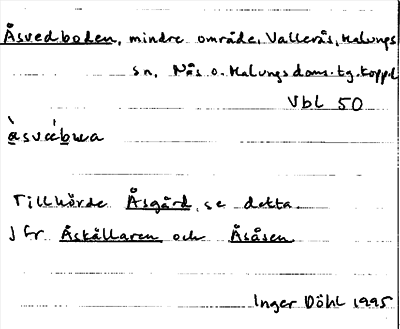 Åsvedboden, mindre område, Vallerås, Malungs
sn, Nås o. Malungs doms. tg. koppl
Vbl 50
Tillhörde Åsgård, se detta.
Jfr Åskällaren och Åsåsen
Inger Döhl 1995